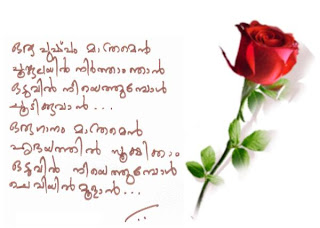 ഒരു പുഷ്പം മാത്രമെൻ
പൂങ്കുലയിൽ നിർത്താം ഞാൻ
ഒടുവിൽ നീയെത്തുമ്പോൾ
ചൂടിക്കുവാൻ ...
ഒരു ഗാനം മാത്രമെൻ
ഹൃദയത്തിൽ സൂക്ഷിക്കാം
ഒടുവിൽ നീയെത്തുമ്പോൾ
ചെവിയിൽ മൂളാൻ ...